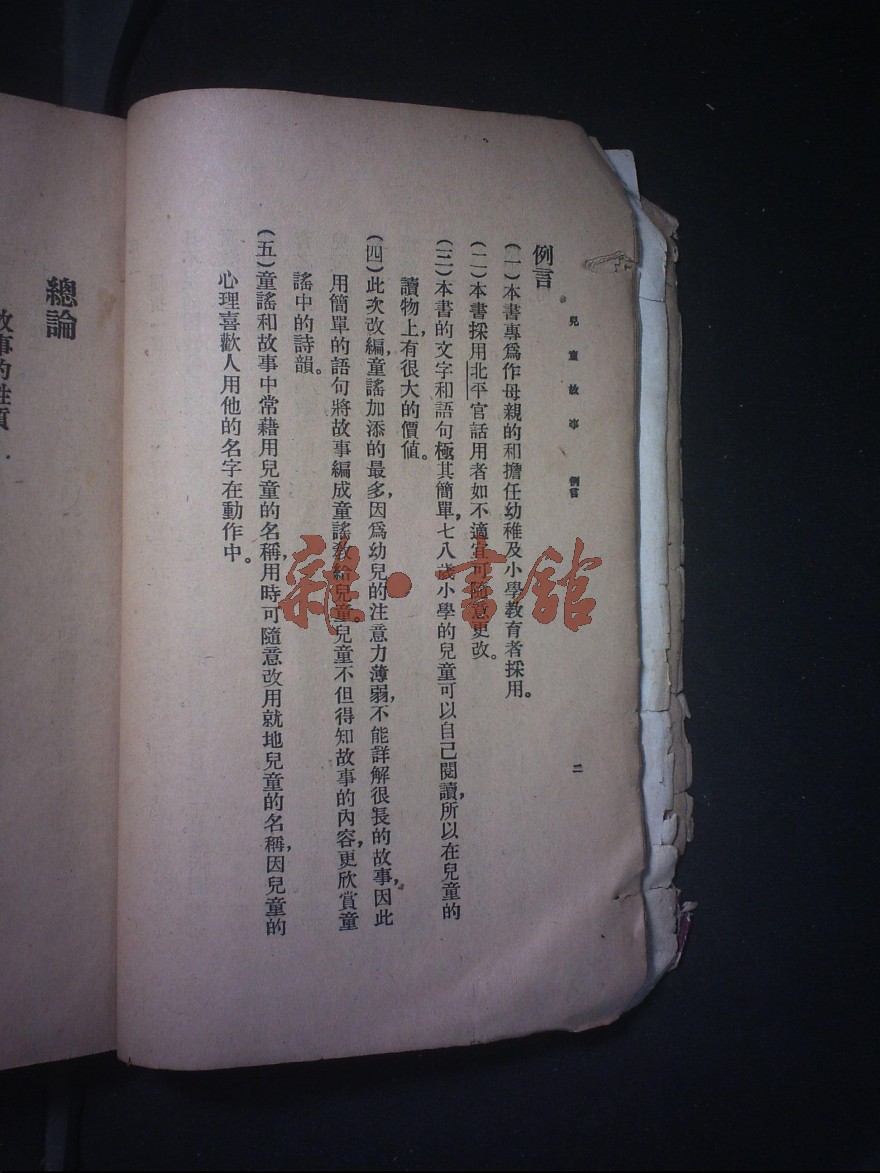 兒童故事 例言 二
例言
(一)本書專爲作母親的和擔任幼稚及小學教育者採用。
(二)本書採用北平官話用者如不適宜可隨意更改。
(三)本書的文字和語句極其簡單,七八歲小學的兒童可以自己閱讀,所以在兒童的
讀物上,有很大的價値。
(四)此次改編,童謠加添的最多,因爲幼兒的注意力薄弱,不能詳解很長的故事,因此
用簡單的語句將故事編成童謠教給兒童。兒童不但得知故事的內容,更欣賞童
謠中的詩韻。
(五)童謠和故事中常藉用兒童的名稱,用時可隨意改用就地兒童的名稱,因兒童的
心理喜歡人用他的名字在動作中。
總論
故事的性質
雜·書館